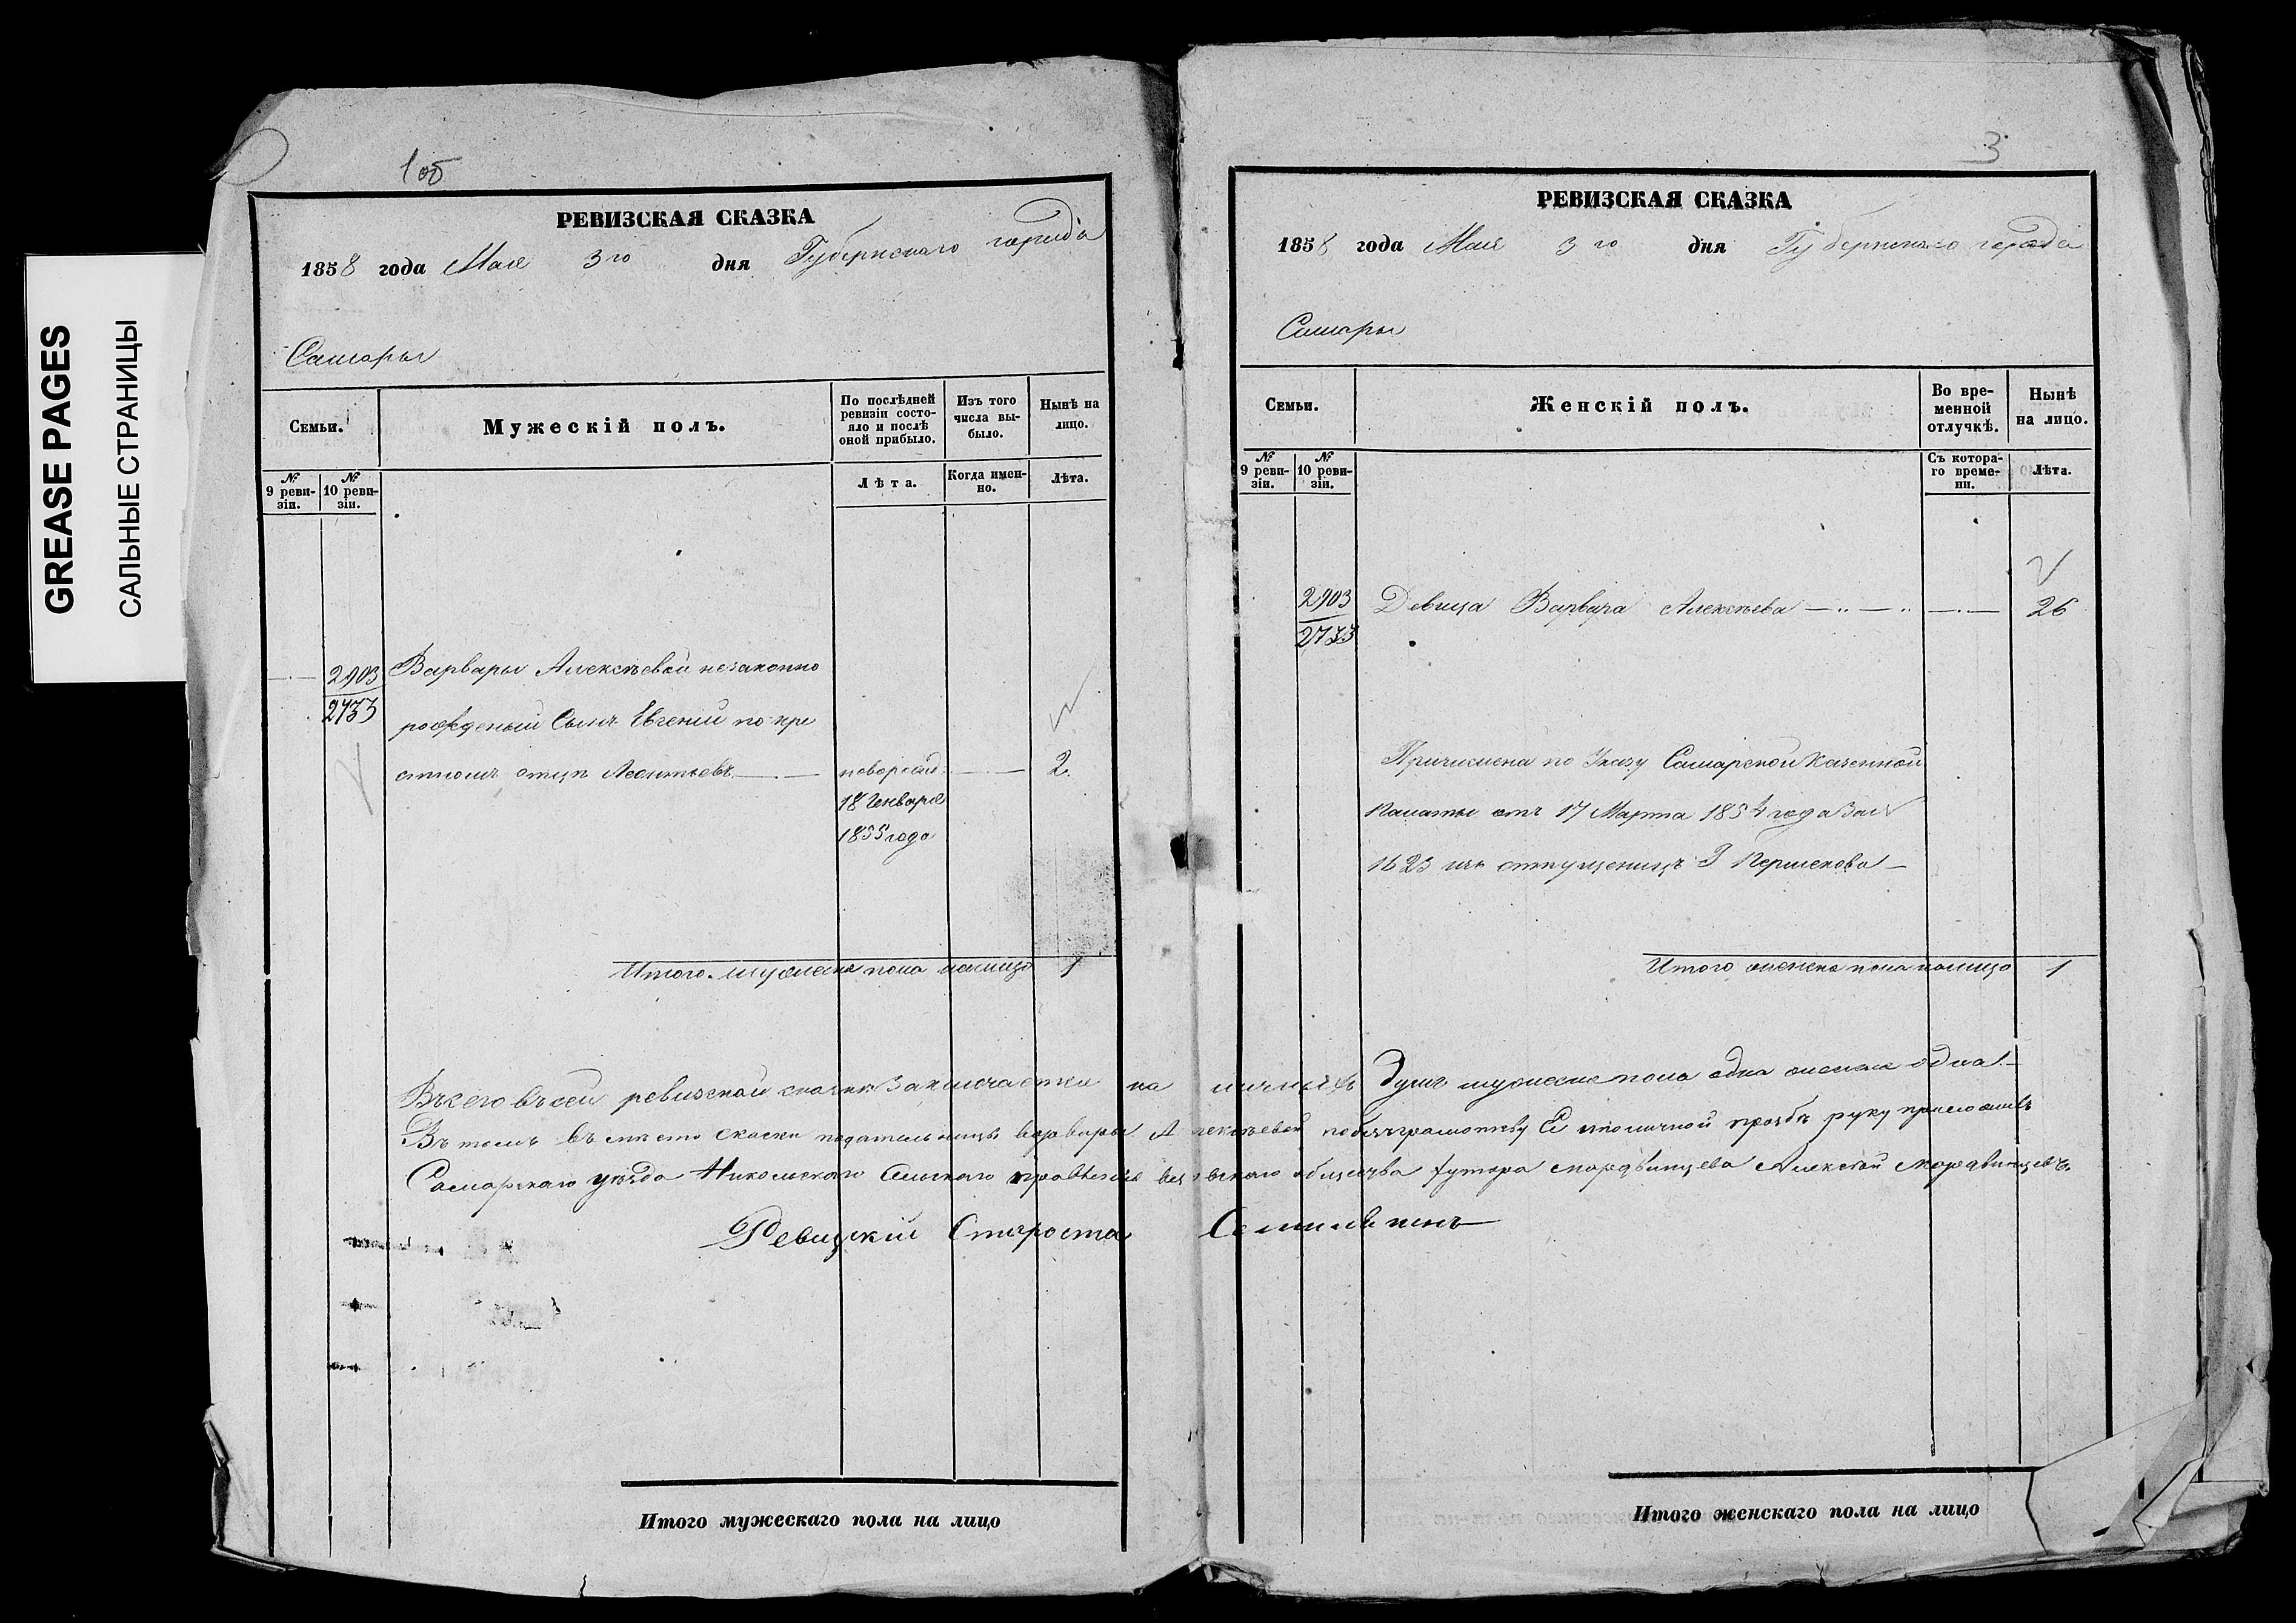 GREASE PAGES
САЛЬНЫЕ СТРАНИЦЫ
1об
РЕВИЗСКАЯ СКАЗКА
1858 года Мая 3го дня Губернскаго города
Самары
Семьи.
Мужескій полъ.
По послѣдней ревизіи состояло и послѣ оной прибыло.
Изъ того числа выбыло.
Нынѣ на лицо.
№ 9 ревизіи.
№ 10 ревизіи.
Лѣта.
Когда именно.
Лѣта.
2903
2733
Варвары Алексѣевой незаконно
рожденый Сынъ Евгений по кре
стномъ отцѣ Леонтьевъ
новорожд.
2
18 Генваря
1855 года
Итого мужеска пола налицо 1
3
РЕВИЗСКАЯ СКАЗКА
1858 года Мая 3го дня Губернскаго города
Самары
Семьи.
Женскій полъ.
Во временной отлучкѣ.
Нынѣ на лицо.
№ 9 ревизіи.
№ 10 ревизіи.
Съ котораго времени.
Лѣта.
2903
2733
Девица Варвара Алексѣева 26
Причислена по Указу Самарской Казенной
Палаты отъ 17 Марта 1854 года за №
1623 изъ отпущеницъ Г
Итого женска пола налицо 1
Всего въ сей ревизской сказкѣ заключается на личныхъ Душъ мужеска пола одна женска одна
Въ томъ вместо скаски подательницы варвары Алексѣевой Ее личной прозбѣ руку приложилъ
Самарскаго уѣзда Никольскаго Сельскаго правления хутора мордвинцева Алексѣй мордвинцевъ
Ревизкій Староста
Итого мужескаго пола на лицо
Итого женскаго пола на лицо